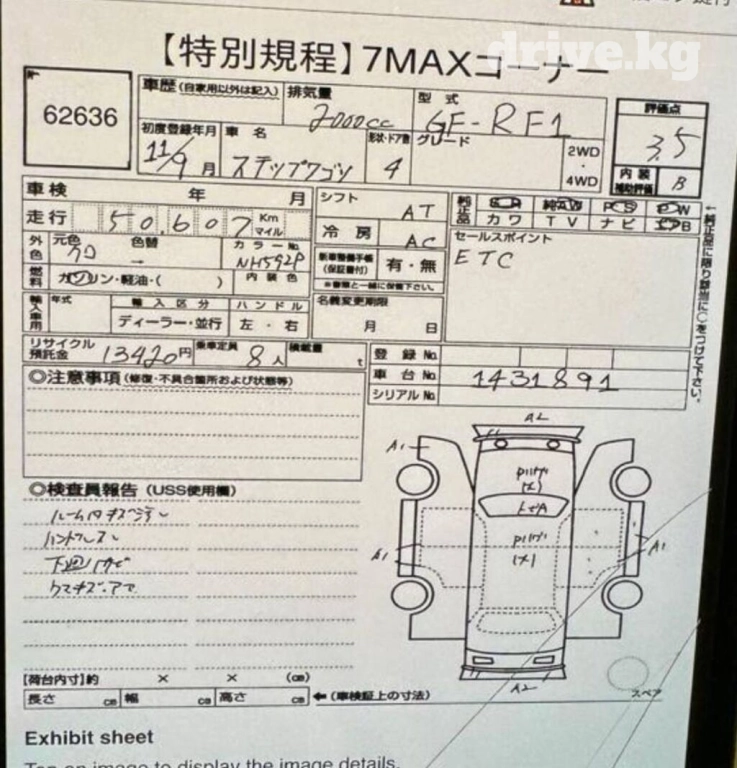 【特別規程】7MAXコーナー
drive.kg
62636
車歴 (自家用以外は記入) 排気量 2000cc 型式 GF-RF1 評価点 3.5
初度登録年月 11/9月 車名 ステップワゴン 形状・ドア数 4 グレード 2WD・4WD 内装補助評価 B
車検 年 月 シフト AT 純正品 SR 純AW PS PW
走行 50,607 Km マイル 冷房 AC カワ TV ナビ エアB
外色 元色 クロ 色替 → カラーNo. NH592P 新車整備手帳(保証書付) 有・無 セールスポイント
ETC
燃料 ガソリン・軽油・( ) 内装色 ※書類と一緒に保管下さい。
輸入車用 年式 輸入区分 ハンドル 名義変更期限
ディーラー・並行 左・右 月 日
←純正品に限り該当に○をつけて下さい。
リサイクル預託金 13420円 乗車定員 8人 積載量 t 登録No.
車台No. 1431891
シリアルNo.
◎注意事項 (修復・不具合箇所および状態等)
A2
A1
◎検査員報告 (USS使用欄)
A1
A1
下廻サビ
【荷台内寸】約 × × (㎝)
A2
長さ ㎝ 幅 ㎝ 高さ ㎝ ←(車検証上の寸法)
スペア
Exhibit sheet
Tap on image to display the image details.